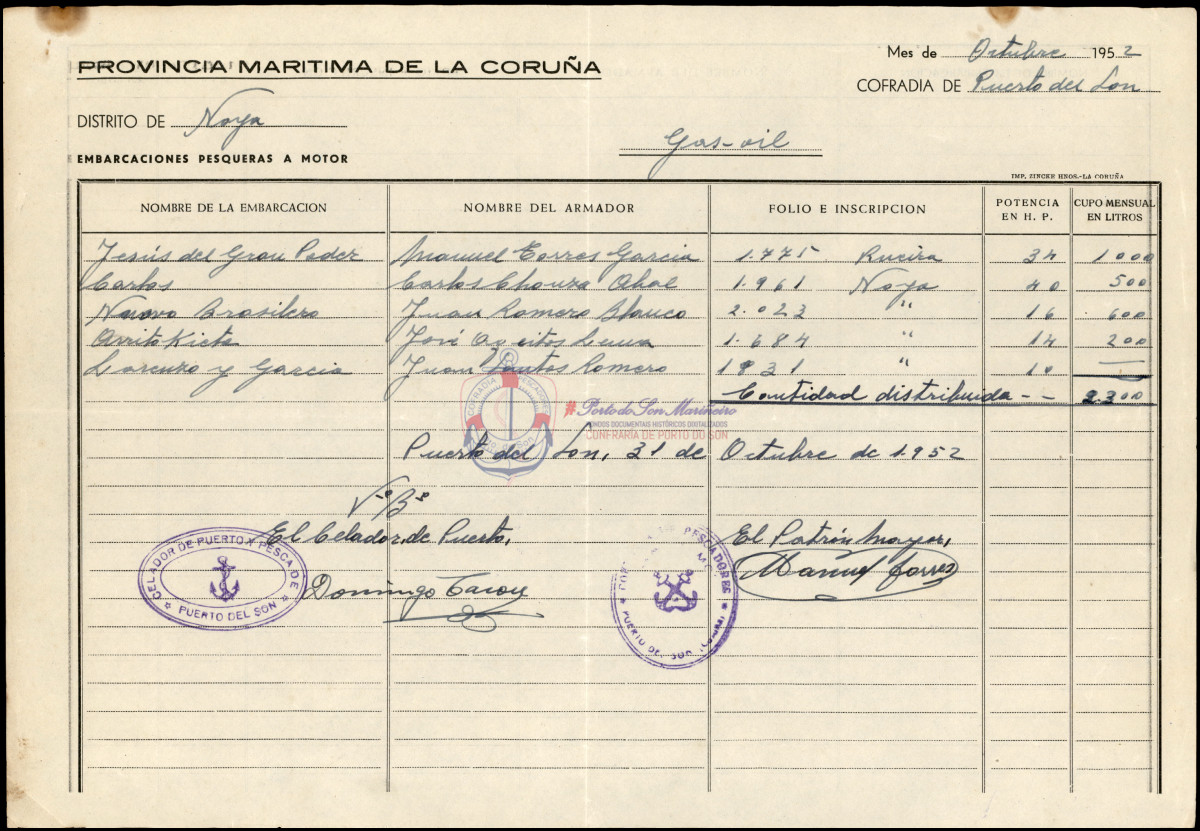 Mes de Octubre 1952
PROVINCIA MARITIMA DE LA CORUÑA
COFRADIA DE Puerto del Son
DISTRITO DE Noya
Gas-oil
EMBARCACIONES PESQUERAS A MOTOR
IMP. ZINCKE HNOS.-LA CORUÑA
NOMBRE DE LA EMBARCACION NOMBRE DEL ARMADOR FOLIO E INSCRIPCION POTENCIA EN H. P. CUPO MENSUAL EN LITROS
Jesús del Gran Poder Manuel Torres Garcia 1.775 Rueira 34 1000
Carlos Carlos Chouza 1.961 Noya 40 500
Nuovo Brasilero Juan Romero Blanco 2.023 " 16 600
José Ageitos Lema 1.684 " 14 200
Lorenzo y Garcia Juan Santos Romero 1931 " 10 —
Cantidad distribuida -- 2.300
COFRADIA PESCADORES
Porto do Son
#Porto do Son Mariñeiro
FONDOS DOCUMENTAIS HISTÓRICOS DIXITALIZADOS
CONFRARÍA DE PORTO DO SON
Puerto del Son, 31 de Octubre de 1.952
Vº Bº
El Celador de Puerto, El Patrón Mayor,
CELADOR DE PUERTO Y PESCA DE
PUERTO DEL SON
Domingo
PESCADORES
PUERTO DEL SON
Manuel Torres